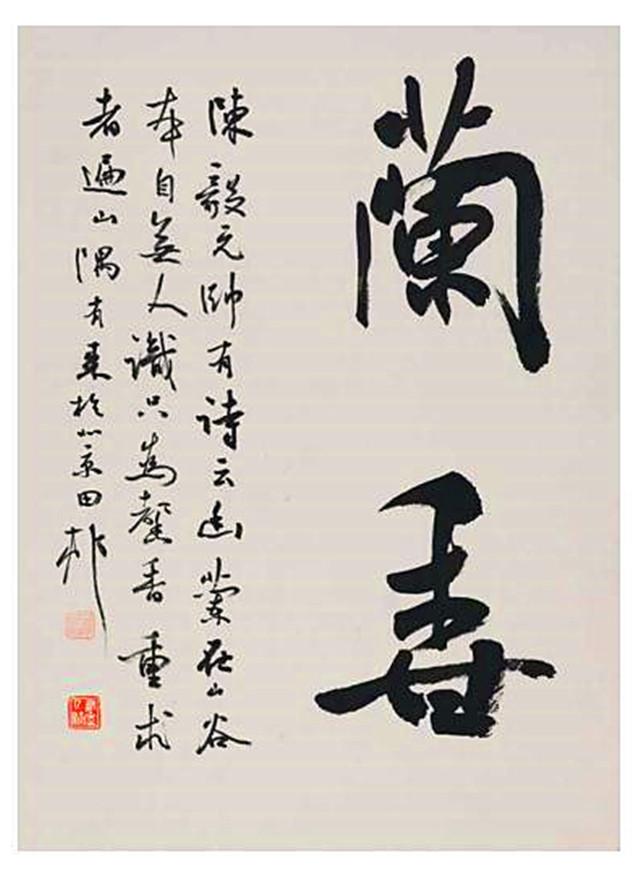 蘭香
陳毅元帥有诗云幽蘭在山谷
本自無人識只為馨香重求
者遍山隅有於北京田村